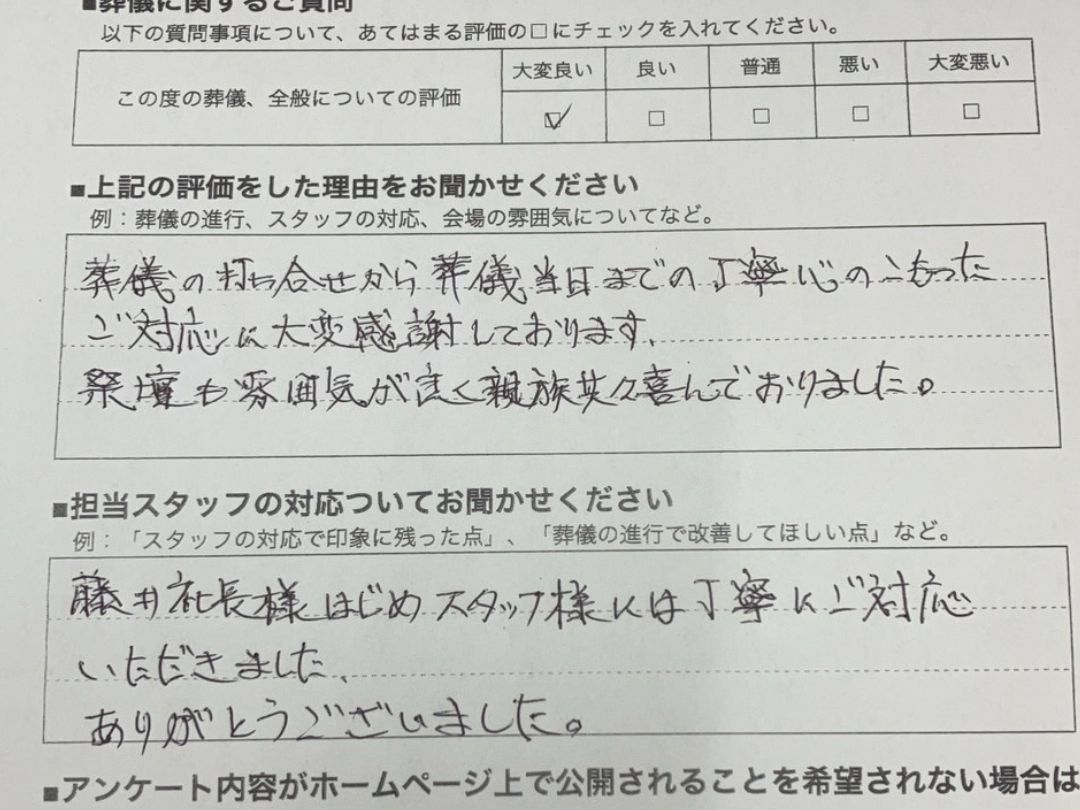 ■葬儀に関するご質問
以下の質問事項について、あてはまる評価の□にチェックを入れてください。
大変良い 良い 普通 悪い 大変悪い
この度の葬儀、全般についての評価 ☑ □ □ □ □
■上記の評価をした理由をお聞かせください
例：葬儀の進行、スタッフの対応、会場の雰囲気についてなど。
葬儀の打ち合せから葬儀当日までの丁寧心のこもった
ご対応に大変感謝しております。
祭壇も雰囲気が良く親族共々喜んでおりました。
■担当スタッフの対応ついてお聞かせください
例：「スタッフの対応で印象に残った点」、「葬儀の進行で改善してほしい点」など。
藤井社長様はじめスタッフ様には丁寧にご対応
いただきました、
ありがとうございました。
■アンケート内容がホームページ上で公開されることを希望されない場合は